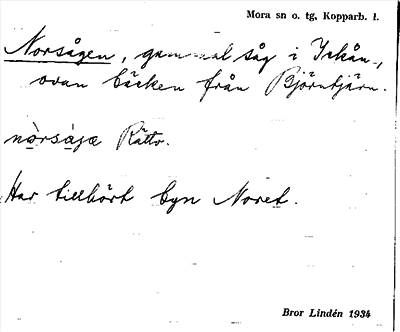 Mora sn o. tg, Kopparb. l.
Norsågen, gammal såg i Ickån,
ovan bäcken från Björntjärn.
nòrsàgæ Rättv.
Har tillhört byn Noret.
Bror Lindén 1934